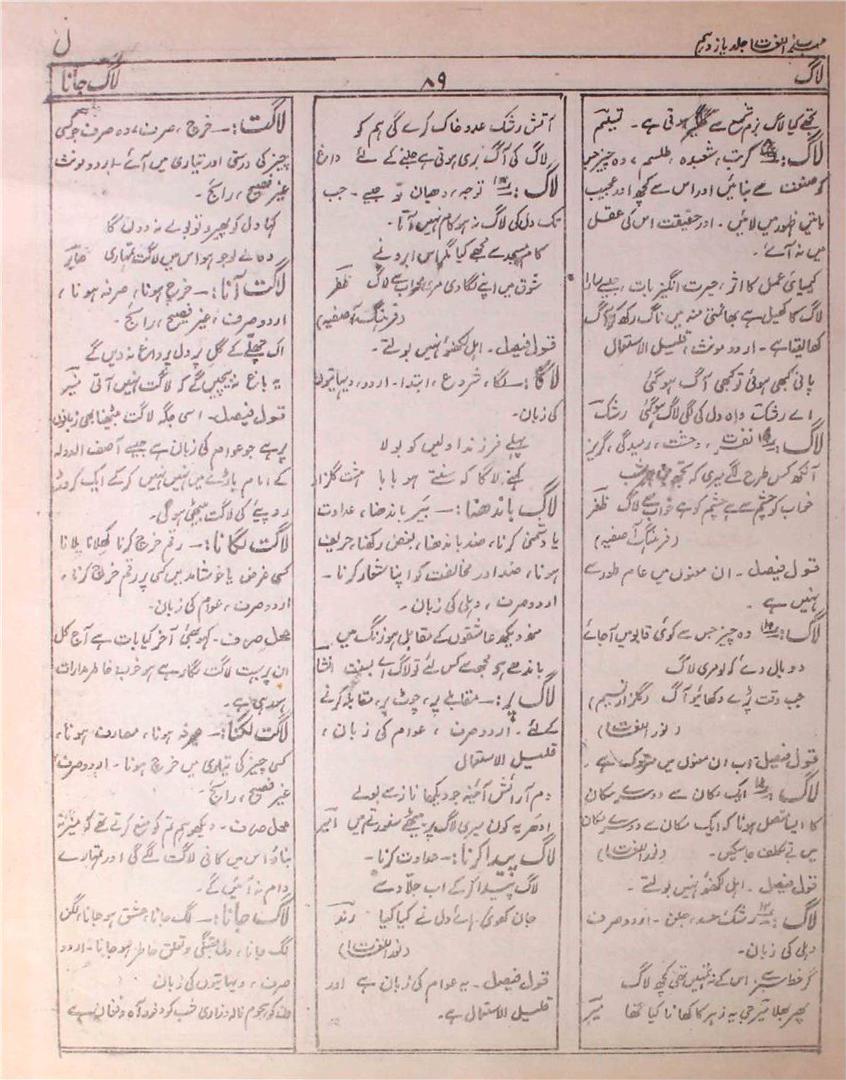 مہذب اللغات جلد یازدہم
ل
لاگ
۸۹
لاگ جانا
تجھے کیا لاگ بزم شمع سے گلگیر ہوتی ہے۔ تسلیم
لاگ:۔ کرتب، شعبدہ، طلسم، وہ چیز جس
کو صنعت سے بنائیں اور اس سے کچھ اور عجیب
باتیں ظہور میں لائیں۔ اور حقیقت اس کی عقل
میں نہ آئے۔
کیمیائی عمل کا اثر، حیرت انگیز بات، جیسے سارا
لاگ کا کھیل ہے بھانمتی منہ میں لاگ رکھ کر آگ
کھا لیتا ہے۔ اردو مونث، قلیل الاستعمال
پانی کبھی ہوئی تو کبھی آگ ہو گئی
اے رشک واہ دل کی لگی لاگ ہو گئی رشک
لاگ:۔ نفرت، وحشت، رمیدگی، گریز
آنکھ کس طرح لگے میری کہ تجھ شب
خواب کو چشم سے ہے چشم کو ہے خواب سے لاگ ظفر
(فرہنگ آصفیہ)
قول فیصل۔ ان معنوں میں عام طور سے
نہیں ہے۔
لاگ:۔ وہ چیز جس سے کوئی قابو میں آ جائے
دو بال دے کو لومری لاگ
جب وقت پڑے دکھائیو آگ (گلزار نسیم)
(نور اللغات)
قول فیصل: اب ان معنوں میں متروک ہے۔
لاگ:۔ ایک مکان سے دوسرے مکان
کا ایسا متصل ہونا کہ ایک مکان سے دوسرے مکان
میں بے تکلف جا سکیں۔ (نور اللغات)
قول فیصل۔ اہل لکھنؤ نہیں بولتے۔
لاگ:۔ رشک، حسد، جلن۔ اردو صرف
دہلی کی زبان۔
گر خط سبز سے اس کے نہ تمہیں تھی کچھ لاگ
پھر بھلا میر جی یہ زہر کا کھانا کیا تھا میر
آتش رشک عدو خاک کرے گی ہم کو
لاگ کی آگ بری ہوتی ہے جلنے کے لئے داغ
لاگ:۔ توجہ، دھیان، لو جیسے۔ جب
تک دل کی لاگ نہ ہو کام نہیں آتا۔
کام مسجد سے مجھے کیا مگر اس ابرو نے
شوق میں اپنے لگا دی مری محراب سے لاگ ظفر
(فرہنگ آصفیہ)
قول فیصل۔ اہل لکھنؤ نہیں بولتے۔
لاگا:۔ لگا، شروع، ابتدا۔ اردو، دیہاتیوں
کی زبان۔
پہلے فرزند اولیں کو بولا
کہنے لاگا کہ سنتے ہو بابا ہشت گلزار
لاگ باندھنا:۔ بیر باندھنا، عداوت
یا دشمنی کرنا، ضد باندھنا، بغض رکھنا، حریف
ہونا، ضد اور مخالفت کو اپنا شعار کرنا۔
اردو صرف، دہلی کی زبان۔
مجھ کو دیکھ عاشقوں کے مقابل ہو رنگ میں
باندھے ہو مجھ سے کس لئے تو لاگ اے بسنت انشا
لاگ پر:۔ مقابلے پر، چوٹ پر، مقابلہ کرنے
کے لئے۔ اردو صرف، عوام کی زبان،
قلیل الاستعمال
دم آرائش آئینہ جو دیکھا ناز سے بولے
ادھر یہ کون میری لاگ پر بیٹھے سنورتے ہیں امیر
لاگ پیدا کرنا:۔ عداوت کرنا۔
لاگ پیدا کر کے اب جلا دے
جان کھوئی ہائے دل نے کیا کیا رند
(نور اللغات)
قول فیصل۔ یہ عوام کی زبان ہے اور
قلیل الاستعمال ہے۔
لاگت:۔ خرچ، صرف، وہ صرف جو کسی
چیز کی درستی اور تیاری میں آئے۔ اردو مونث
غیر فصیح، رائج۔
کہا دل کو پھیر دو تو بولے نہ دوں گا
وہ لے لو جو اس میں لاگت تمہاری
لاگت آنا:۔ خرچ ہونا، صرفہ ہونا،
اردو صرف، غیر فصیح، رائج۔
اک چھلے کے گل پر دل پر داغ نہ دیں گے
یہ باغ نہ بیچیں گے کہ لاگت نہیں آتی منیر
قول فیصل۔ اسی جگہ لاگت بیٹھنا بھی زبانوں
پر ہے جو عوام کی زبان ہے جیسے آصف الدولہ
کے امام باڑے میں نہیں نہیں کر کے ایک کروڑ
روپیے کی لاگت بیٹھی ہوگی۔
لاگت لگانا:۔ رقم خرچ کرنا کھلانا پلانا
کسی غرض یا خوشامد میں کسی پر رقم خرچ کرنا۔
اردو صرف، عوام کی زبان۔
محل صرف۔ کہو بھئی آخر کیا بات ہے آج کل
ان پر بہت لاگت لگا رہے ہو خوب خاطر مدارات
ہو رہی ہے۔
لاگت لگنا:۔ صرفہ ہونا، مصارف ہونا،
کسی چیز کی تیاری میں خرچ ہونا۔ اردو صرف
غیر فصیح، رائج۔
محل صرف۔ دیکھو ہم تم کو منع کرتے تھے کہ میز نہ
بناؤ اس میں کافی لاگت لگے گی اور تمہارے
دام نہ آئیں گے۔
لاگ جانا:۔ لگ جانا، عشق ہو جانا، لگن
لگ جانا، دل بستگی و تعلق خاطر ہو جانا۔ اردو
صرف، دیہاتیوں کی زبان
ہجوم نالہ و زاری شب کو دود آہ و فغاں ہے